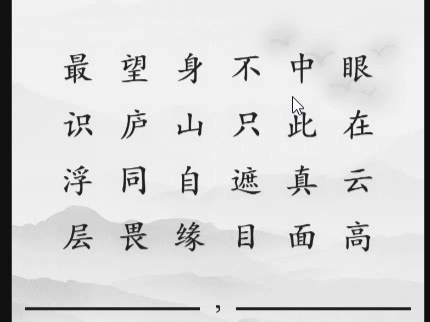 最望身不中眼
识庐山只此在
浮同自遮真云
层畏缘目面高
，